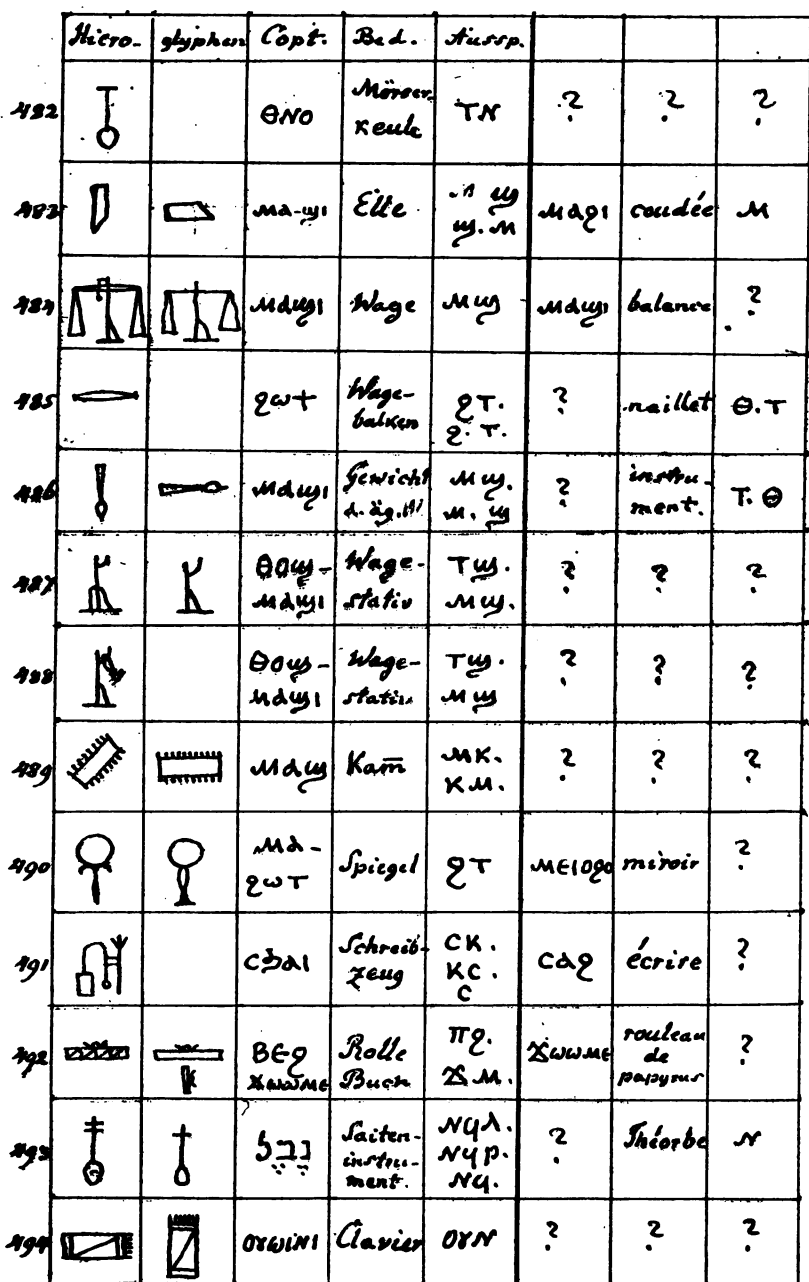 Hiero- glyphen Copt. Bed. Aussp.
482 ⲑⲛⲟ Mörser- keule ⲧⲛ ? ? ?
483 ⲙⲁ-ϣⲓ Elle ⲙ ϣ ϣ. ⲙ ⲙⲁϩⲓ coudée ⲙ
484 ⲙⲁϣⲓ Wage ⲙϣ ⲙⲁϣⲓ balance ?
485 ϩⲱⲧ Wage- balken ϩⲧ. ϩ. ⲧ. ? maillet ⲑ. ⲧ
486 ⲙⲁϣⲓ Gewicht ⲙϣ. ⲙ. ϣ ? instru- ment. ⲧ. ⲑ
487 ⲑⲟϣ- ⲙⲁϣⲓ Wage- stativ ⲧϣ. ⲙϣ. ? ? ?
488 ⲑⲟϣ- ⲙⲁϣⲓ Wage- stativ ⲧϣ. ⲙϣ ? ? ?
489 ⲙⲁϣ Kam̅ ⲙⲕ. ⲕⲙ. ? ? ?
490 ⲙⲁ- ϩⲱⲧ Spiegel ϩⲧ ⲙⲉⲓⲟϩⲟ miroir ?
491 ⲥϧⲁⲓ Schreib- zeug ⲥⲕ. ⲕⲥ. ⲥ ⲥⲁϩ écrire ?
492 ⲃⲉϩ ϫⲱⲱⲙⲉ Rolle Buch ⲡϩ. ϫⲙ. ϫⲱⲱⲙⲉ rouleau de papyrus ?
493 נֵבֶל Saiten- instru- ment. ⲛϥⲗ. ⲛϥⲣ. ⲛϥ. ? Théorbe ⲛ
494 ⲟⲩⲱⲓⲛⲓ Clavier ⲟⲩⲛ ? ? ?